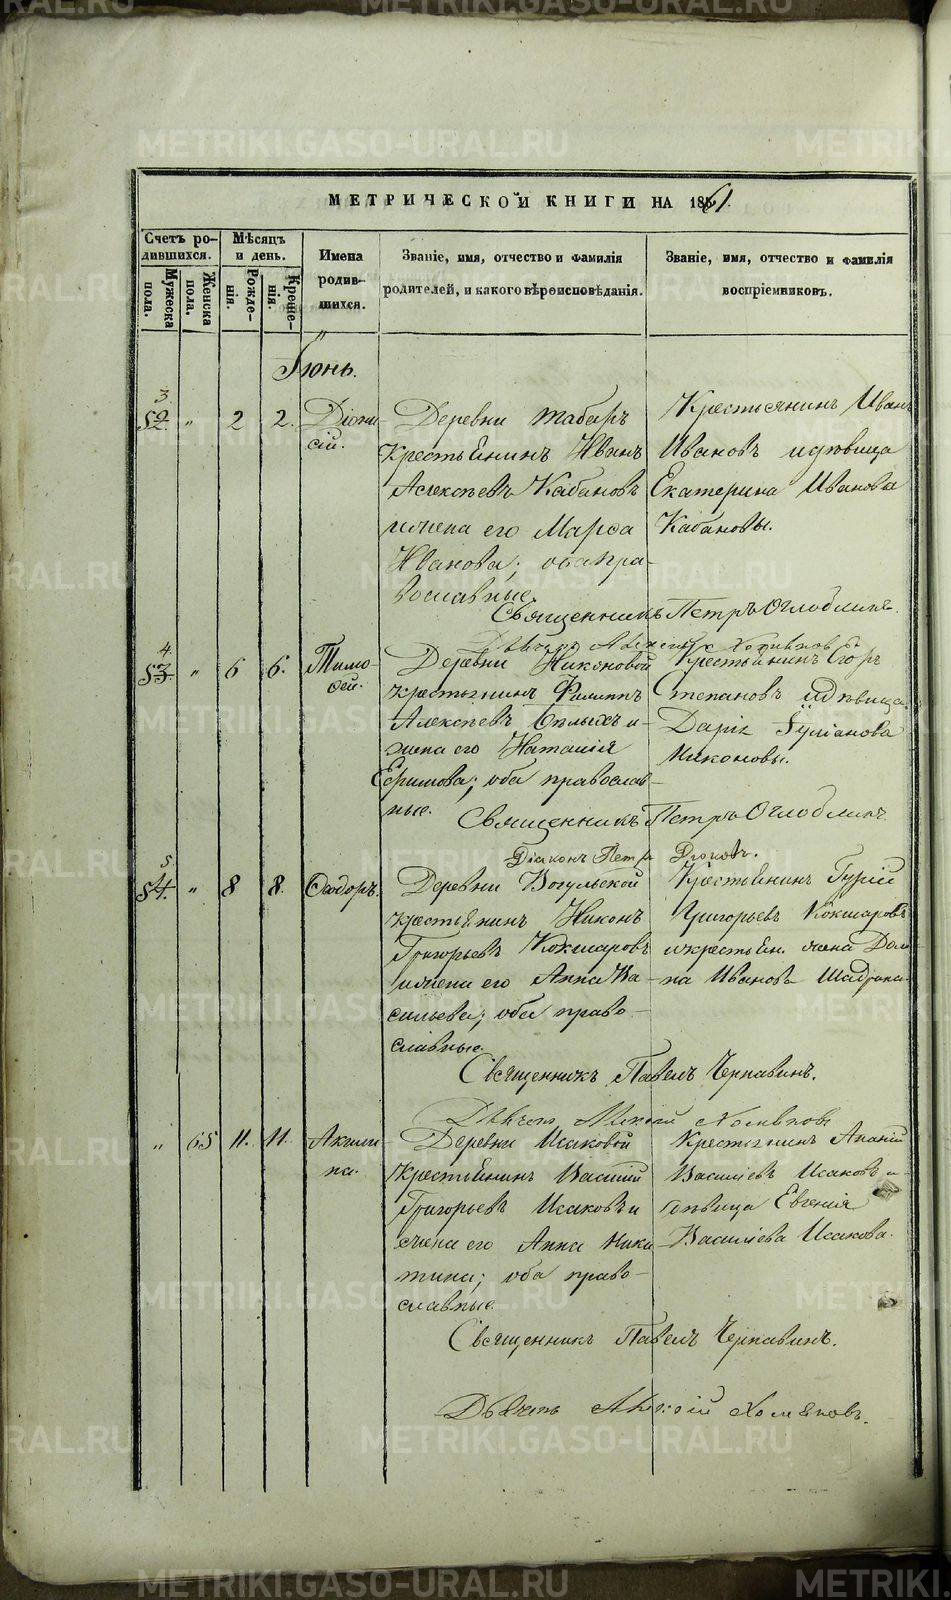 МЕТРИЧЕСКОЙ КНИГИ НА 1861.
Счетъ родившихся.
Мужеска пола.
Женска пола.
Мѣсяцъ и день.
Рожденія.
Крещенія.
Имена родившихся.
Званіе, имя, отчество и фамилія родителей, и какого вѣроисповѣданія.
Званіе, имя, отчество и фамилія воспріемниковъ.
Іюнь.
3
52. " 2 2. Діони-
сій.
Деревни Табаръ
крестьянинъ Иванъ
Алексѣевъ Кабановъ
и жена его Марѳа
Иванова; оба пра-
вославные.
Крестьянинъ Иванъ
Ивановъ и дѣвица
Екатерина Иванова
Кабановы.
Священникъ Петръ Оглоблинъ.
Дьячекъ Алексѣй Хомяковъ
4.
53. " 6 6. Тимо-
ѳей.
Деревни Никоновой
крестьянинъ Филиппъ
Алексѣевъ Бѣлыхъ и
жена его Наталія
Ефимова; оба православ-
ные.
Крестьянинъ Егоръ
Степановъ и дѣвица
Дарія Іуліанова
Никоновы.
Священникъ Петръ Оглоблинъ
Діаконъ Петръ
5
54. " 8 8. Ѳеодоръ.
Деревни Вогульской
крестьянинъ Никонъ
Григорьевъ Кокшаровъ
и жена его Анна Ва-
сильева; оба право-
славные.
Крестьянинъ Гурій
Григорьевъ Кокшаровъ
и крестьян. жена Дом-
на Иванова Шадрина.
Священникъ Павелъ Чернавинъ.
Дьячекъ Алексѣй Хомяковъ
" 65 11. 11. Акили-
на.
Деревни Исаковой
крестьянинъ Василій
Григорьевъ Исаковъ и
жена его Анна Ники-
тина; оба право-
славные.
Крестьянинъ Ананій
Василіевъ Исаковъ и
дѣвица Евгенія
Василіева Исакова.
Священникъ Павелъ Чернавинъ.
Дьячекъ Алексѣй Хомяковъ.
METRIKI.GASO-URAL.RU